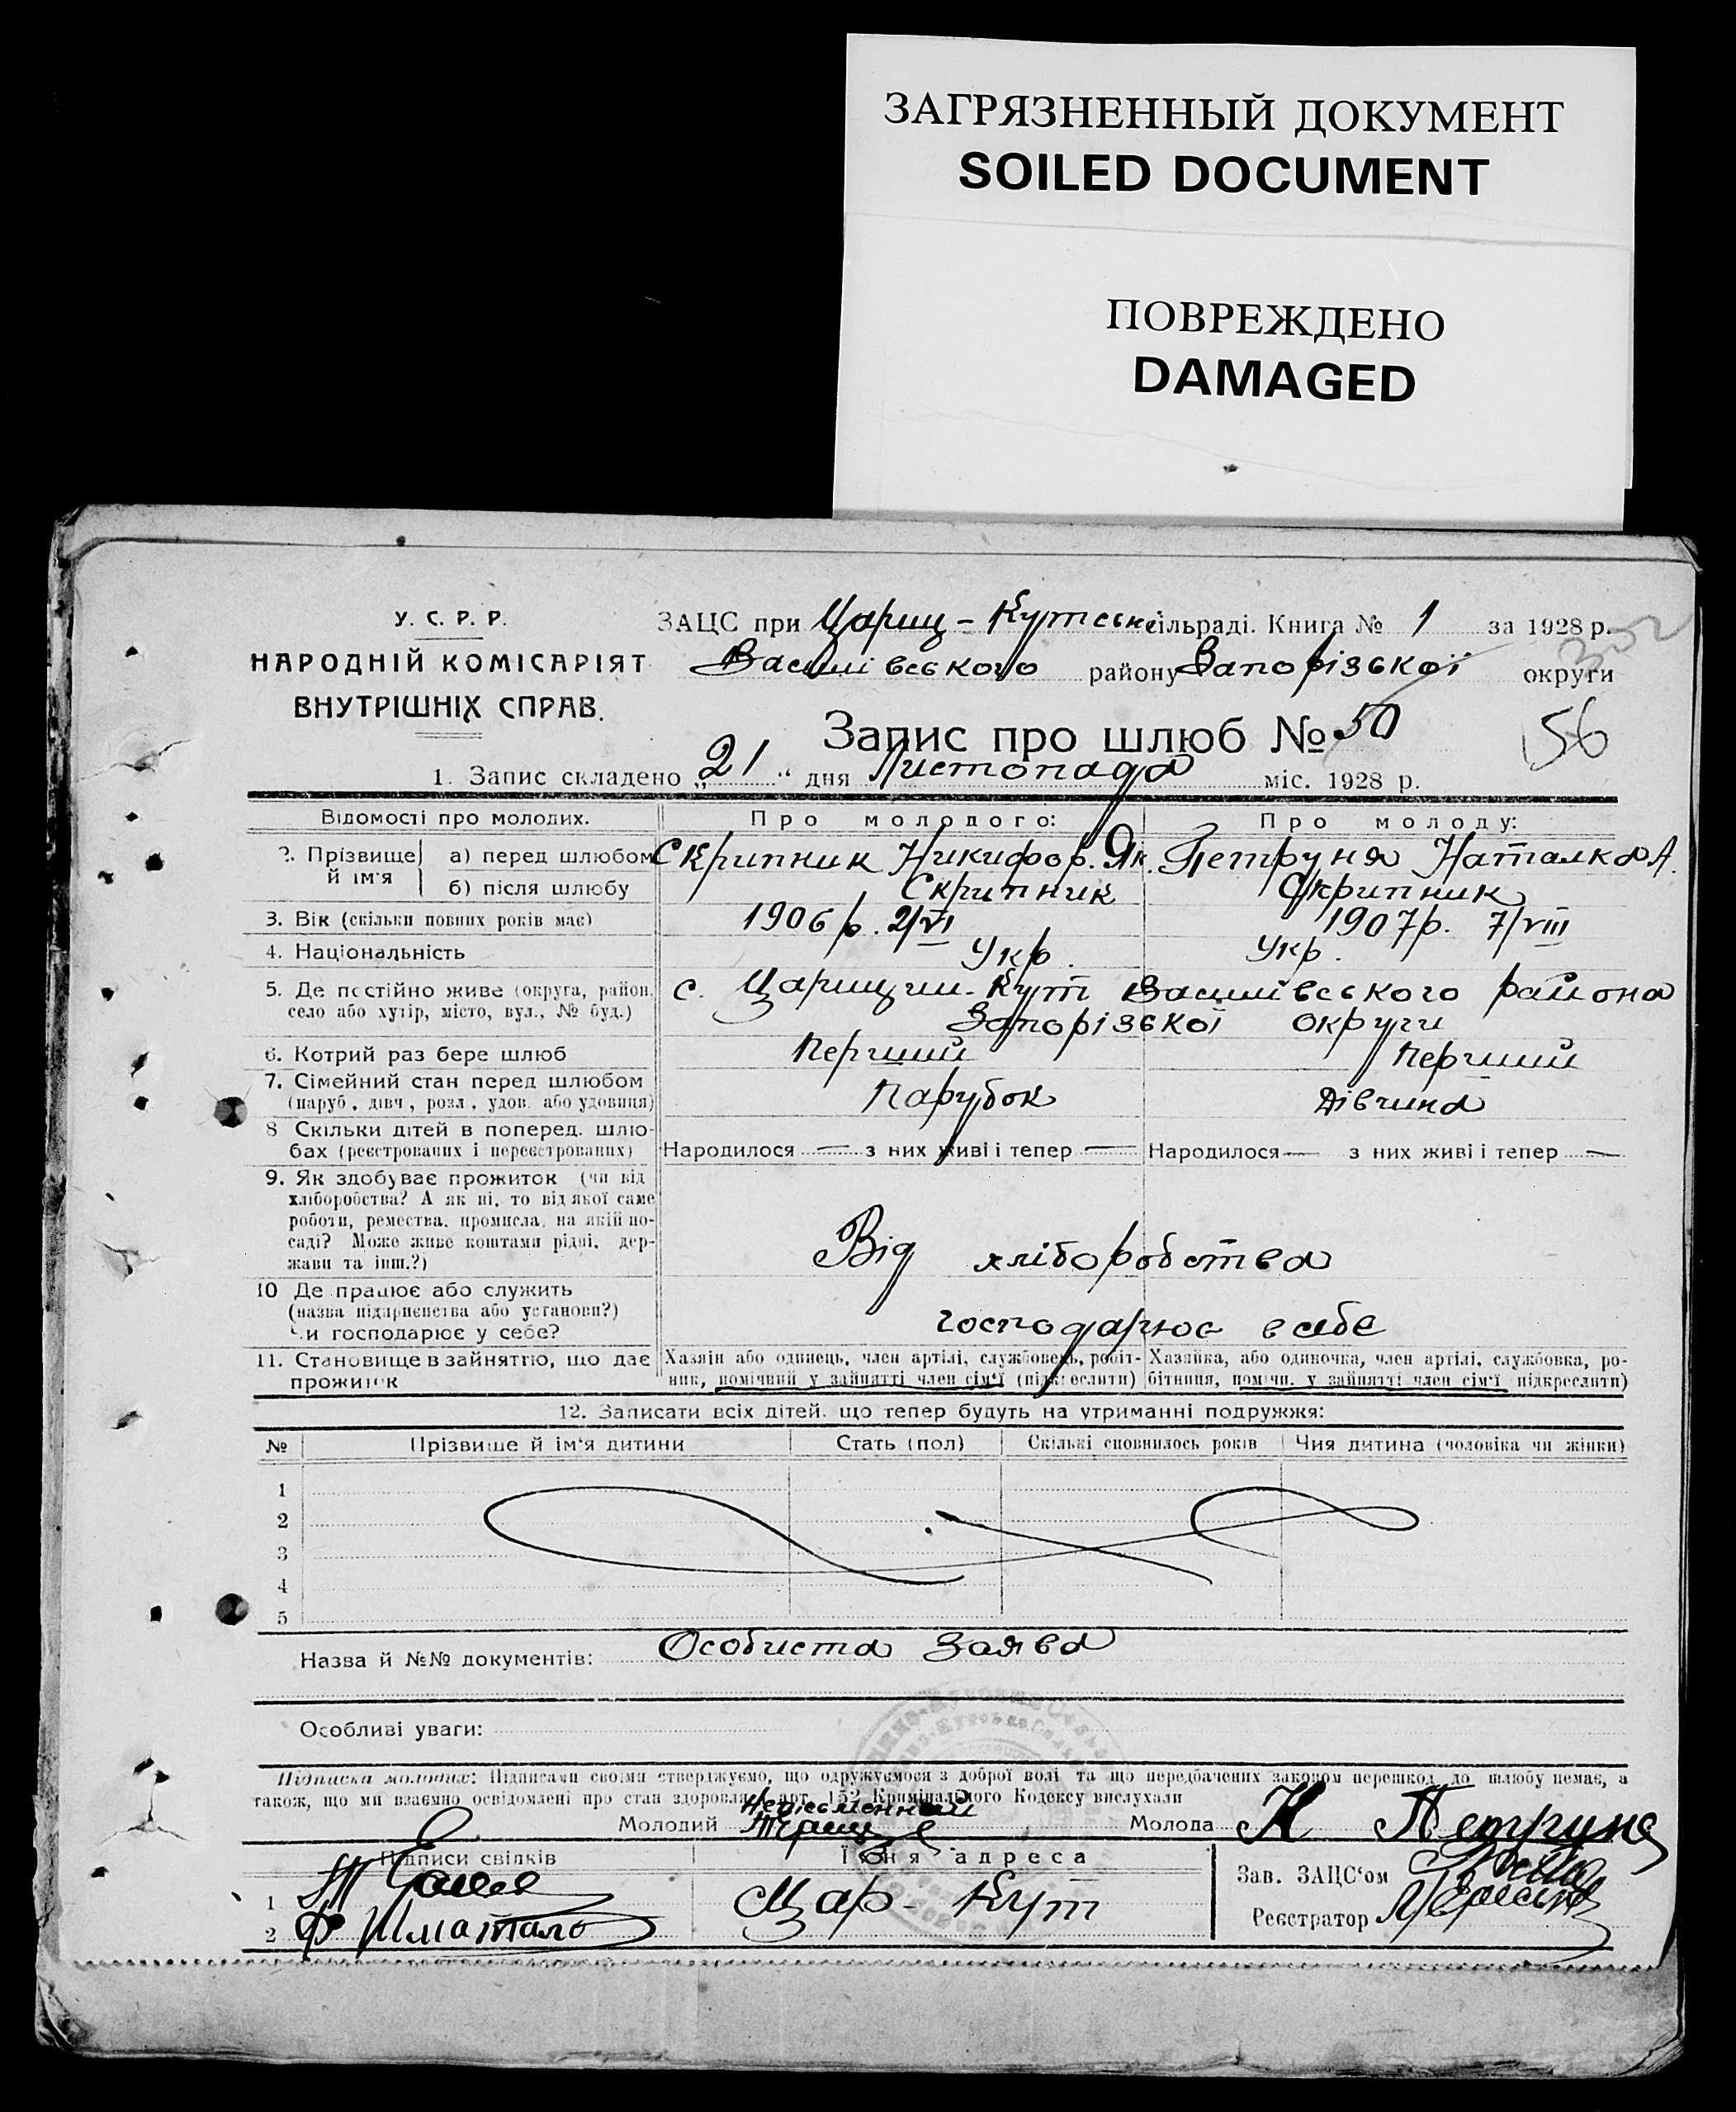 ЗАГРЯЗНЕННЫЙ ДОКУМЕНТ
SOILED DOCUMENT
ПОВРЕЖДЕНО
DAMAGED
У. С. Р. Р.
НАРОДНІЙ КОМІСАРІЯТ
ВНУТРІШНІХ СПРАВ.
ЗАЦС при Цариц-Кутській сільраді. Книга № 1 за 1928 р.
Василівського району Запорізької округи
Запис про шлюб № 50
156
1. Запис складено „21“ дня Листопада міс. 1928 р.
Відомості про молодих. Про молодого: Про молоду:
2. Прізвище й ім'я а) перед шлюбом Скрипник Никифор. Як. Петруня Наталка А.
б) після шлюбу Скрипник Скрипник
3. Вік (скільки повних років має) 1906 р. 2/VI 1907 р. 7/VIII
4. Національність Укр. Укр.
5. Де постійно живе (округа, район, с. Царицин-Кут Василівського района
село або хутір, місто, вул., № буд.) Запорізької округи
6. Котрий раз бере шлюб Перший Перший
7. Сімейний стан перед шлюбом
(паруб., дівч., розл., удов. або удовиця) Парубок Дівчина
8 Скільки дітей в поперед. шлю-
бах (реєстрованих і нереєстрованих) Народилося — з них живі і тепер — Народилося — з них живі і тепер —
9. Як здобуває прожиток (чи від
хліборобства? А як ні, то від якої саме
роботи, ремества, промисла, на якій по-
саді? Може живе коштами рідні, дер-
жави та інш.?) Від хліборобства
10 Де працює або служить
(назва підприємства або установи?)
Чи господарює у себе? господарює в себе
11. Становище в зайнятгю, що дає Хазяін або одинець, член артілі, службовець, робіт- Хазяйка, або одиночка, член артілі, службовка, ро-
прожиток ник, помічний у зайнятті член сім'ї (підкреслити) бітниця, помічн. у зайнятті член сім'ї підкреслити)
12. Записати всіх дітей, що тепер будуть на утриманні подружжя:
№ Прізвище й ім'я дитини Стать (пол) Скількі сповнилось років Чия дитина (чоловіка чи жінки)
1
2
3
4
5
Назва й №№ документів: Особиста заява
Особливі уваги:
Підписка молодих: Підписами своїми стверджуємо, що одружуємося з доброї волі та що передбачених законом перешкод до шлюбу немає, а
також, що ми взаємно освідомлені про стан здоровля й арт. 152 Кримінального Кодексу вислухали
Молодий Неписьменний Молода Н Петруня
Підписи свідків Їхня адреса Зав. ЗАЦС'ом
1 Цар-Кут Реєстратор
2 Ф Шматало